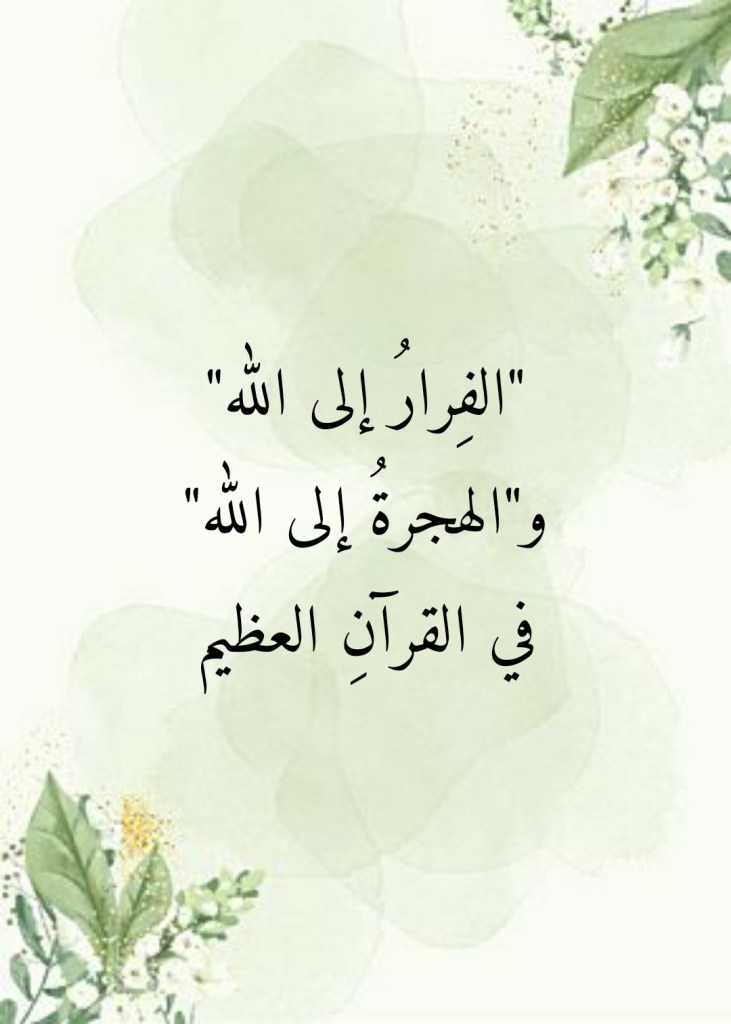 "الفِرارُ إلى الله"
و"الهجرةُ إلى الله"
في القرآنِ العظيم